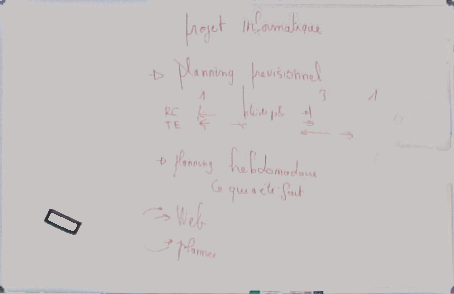 projet informatique
planning previsionnel
1 3 1
RC
TE
planning hebdomadaire
ce qui a été fait
Web
planner